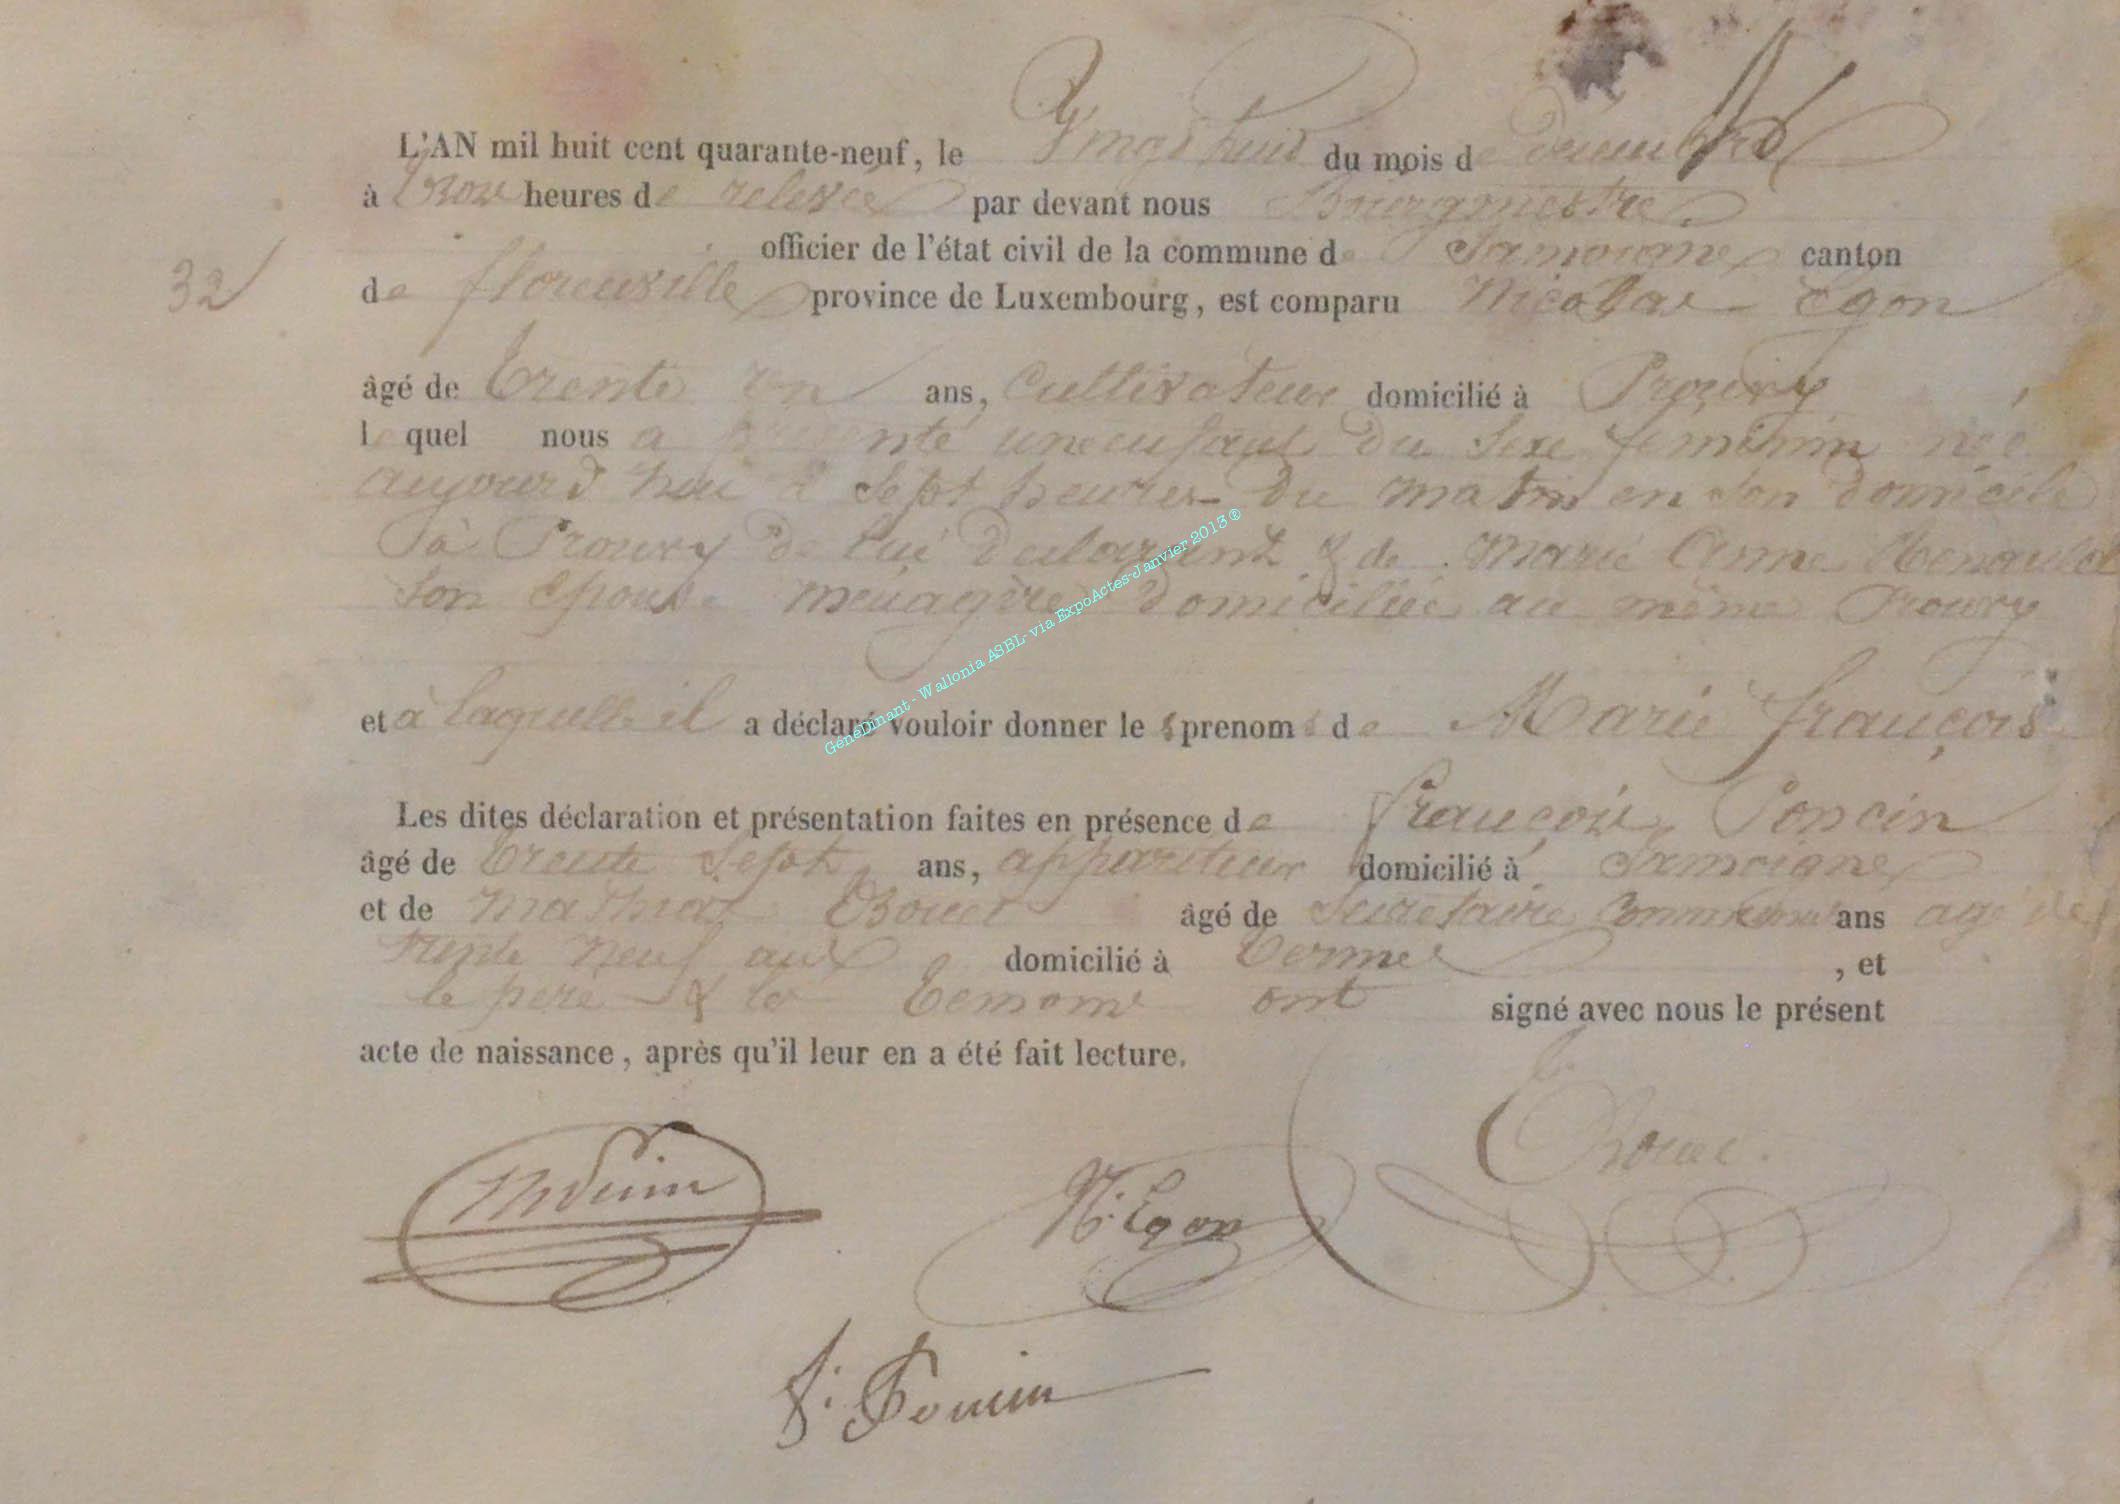 L'AN mil huit cent quarante-neuf, le Vingt huit du mois de decembre
à trois heures de relevée par devant nous Bourgmestre
officier de l'état civil de la commune de Jamoigne canton
32
de florenville province de Luxembourg, est comparu Nicolas Egon
âgé de trente un ans, Cultivateur domicilié à Prouvy
lequel nous a présenté une enfant du sexe feminin née
aujourd'hui à sept heures du matin en son domicile
à Prouvy de lui declarant & de Marie Anne
son epouse ménagère domiciliée au même Prouvy
et à laquelle il a déclaré vouloir donner les prenoms de Marie François
Les dites déclaration et présentation faites en présence de François Poncin
âgé de trente sept ans, appariteur domicilié à Jamoigne
et de Mathias Bouet âgé de Secretaire Communal ans agé de
trente neuf ans domicilié à Termes , et
le pere & les temoins ont signé avec nous le présent
acte de naissance, après qu'il leur en a été fait lecture.
Bouet.
N. Egon
f. Poncin
GénéDinant - Wallonia ASBL- via ExpoActes-Janvier 2013 ®